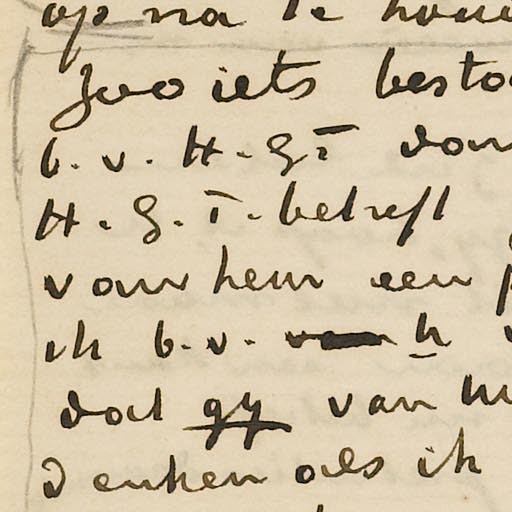 op na te houd
Zoo iets besta
b.v. H.G.T dan
H.G.T. betreft
van hem een p
ik b.v. van U v
dat gy van m
denken als ik